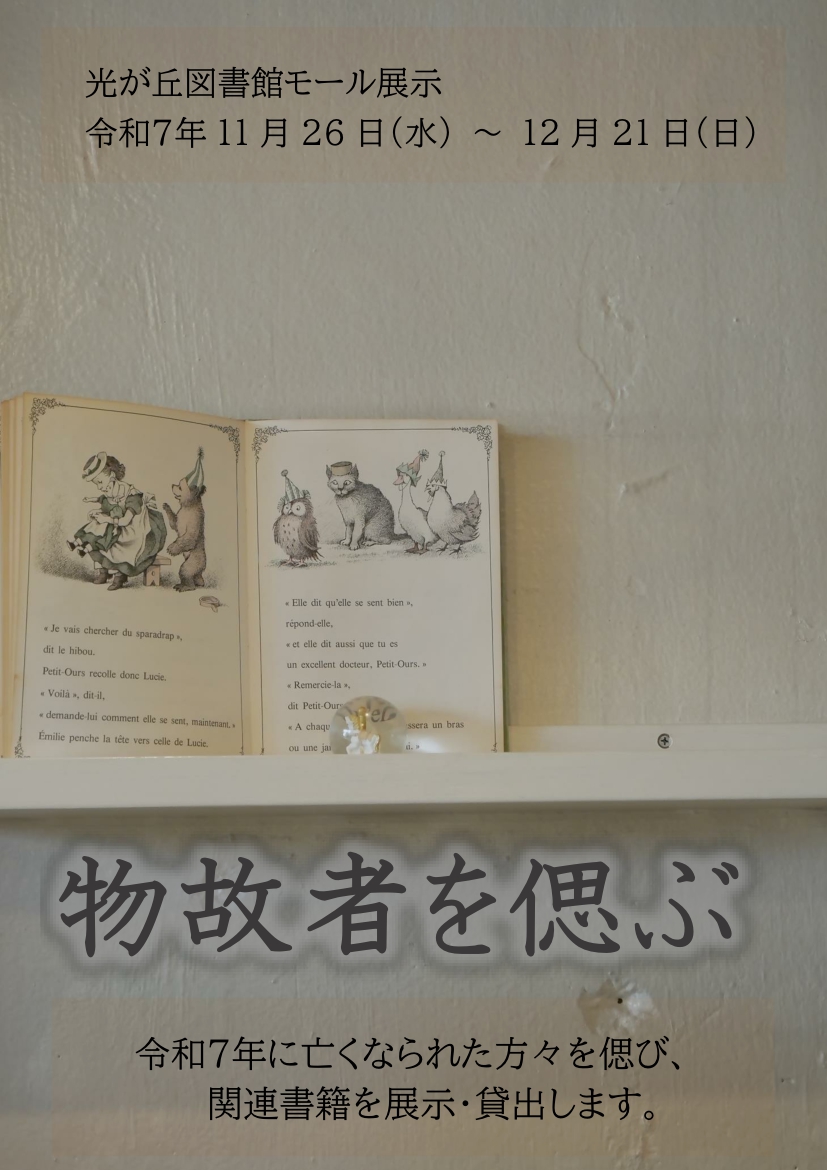 光が丘図書館モール展示
令和7年 11 月 26 日（水） ～ 12 月 21 日（日）
« Je vais chercher du sparadrap »,
dit le hibou.
Petit-Ours recolle donc Lucie.
« Voilà », dit-il,
« demande-lui comment elle se sent, maintenant. »
Émilie penche la tête vers celle de Lucie.
« Elle dit qu'elle se sent bien »,
répond-elle,
« et elle dit aussi que tu es
un excellent docteur, Petit-Ours. »
« Remercie-la »,
dit Petit-Ours
« A chaqu ssera un bras
ou une ja
物故者を偲ぶ
令和7年に亡くなられた方々を偲び、
関連書籍を展示・貸出します。